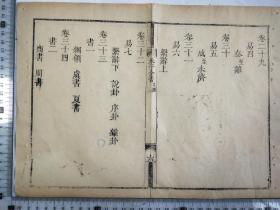 卷二十九
易四
泰至離
卷三十
易五
咸至未濟
卷三十一
易六
繫辭上
卷三十二
易七
繫辭下 說卦 序卦 雜卦
卷三十三
書一
綱領 虞書 夏書
卷三十四
書二
商書 周書